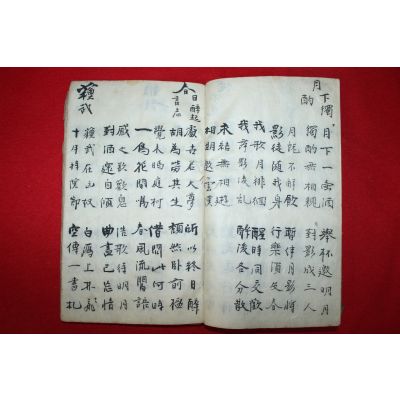 月下獨酌
月下一壺酒 擧杯邀明月
獨酌無相親 對影成三人
月旣不解飮 暫伴月影將
影徒隨我身 行樂須及春
我歌月徘徊 醒時同交歡
我舞影凌乱 醉後各分散
永結無情遊
相期邈雲漢
春日醉起言志
處世若大夢 所以終日醉
胡爲勞其生 頹然臥前楹
覺來眄庭前 借問此何時
一鳥花間鳴 春風流鶯語
感之欲歎息 浩歌待明月
對酒還自傾 曲盡已忘情
蘇武
蘇武在匈奴 白鴈上林飛
十年持漢節 空傳一書札